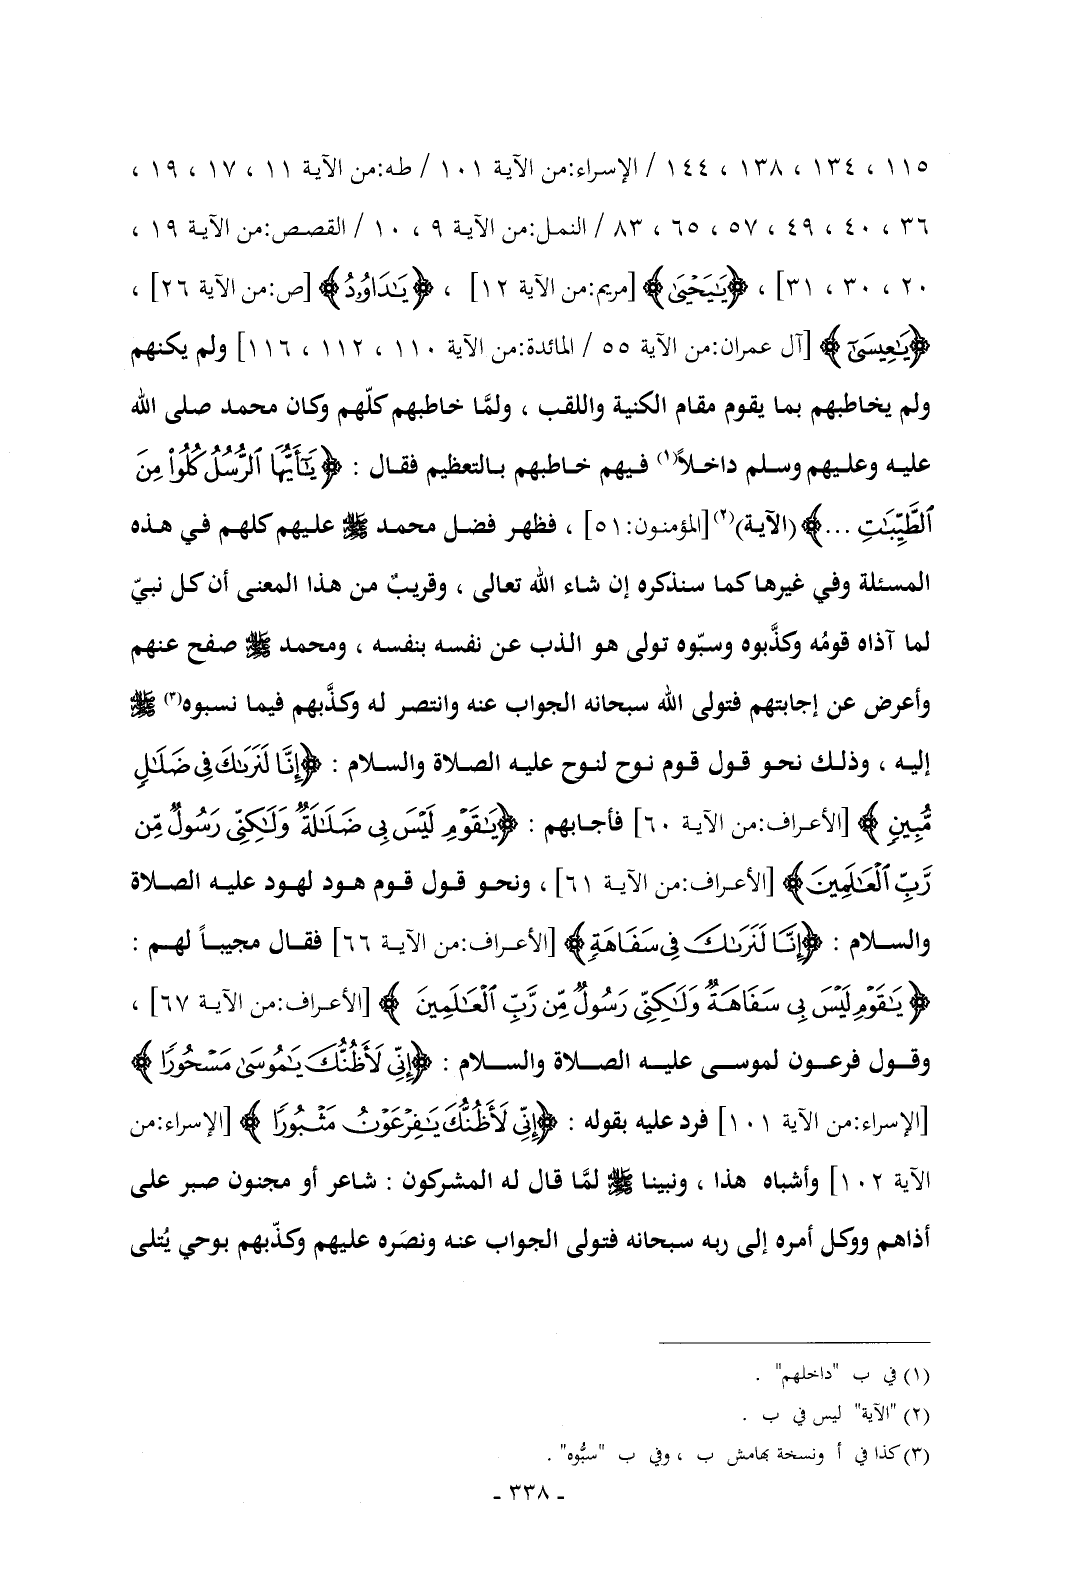 ١١٥ ، ١٣٤ ، ١٣٨ ، ١٤٤ / الإسراء:من الآية ١٠١ / طه:من الآية ١١ ، ١٧ ، ١٩ ،
٣٦ ، ٤٠ ، ٤٩ ، ٥٧ ، ٦٥ ، ٨٣ / النمل:من الآية ٩ ، ١٠ / القصص:من الآية ١٩ ،
٢٠ ، ٣٠ ، ٣١] ، ﴿يَٰيَحۡيَىٰ﴾ [مريم:من الآية ١٢] ، ﴿يَٰدَاوُۥدُ﴾ [ص:من الآية ٢٦] ،
﴿يَٰعِيسَىٰٓ﴾ [آل عمران:من الآية ٥٥ / المائدة:من الآية ١١٠ ، ١١٢ ، ١١٦] ولم يكنهم
ولم يخاطبهم بما يقوم مقام الكنية واللقب ، ولمَّا خاطبهم كلّهم وكان محمد صلى الله
عليه وعليهم وسلم داخلاً(١) فيهم خاطبهم بالتعظيم فقال : ﴿يَٰٓأَيُّهَا ٱلرُّسُلُ كُلُواْ مِنَ
ٱلطَّيِّبَٰتِ ...﴾ (الآية)(٢) [المؤمنون:٥١] ، فظهر فضل محمد ﷺ عليهم كلهم في هذه
المسئلة وفي غيرها كما سنذكره إن شاء الله تعالى ، وقريبٌ من هذا المعنى أن كل نبيّ
لما آذاه قومُه وكذَّبوه وسبّوه تولى هو الذب عن نفسه بنفسه ، ومحمد ﷺ صفح عنهم
وأعرض عن إجابتهم فتولى الله سبحانه الجواب عنه وانتصر له وكذَّبهم فيما نسبوه(٣) ﷺ
إليه ، وذلك نحو قول قوم نوح لنوح عليه الصلاة والسلام : ﴿إِنَّا لَنَرَىٰكَ فِي ضَلَٰلٍ
مُّبِينٍ﴾ [الأعراف:من الآية ٦٠] فأجابهم : ﴿يَٰقَوۡمِ لَيۡسَ بِي ضَلَٰلَةٌ وَلَٰكِنِّي رَسُولٌ مِّن
رَّبِّ ٱلۡعَٰلَمِينَ﴾ [الأعراف:من الآية ٦١] ، ونحو قول قوم هود لهود عليه الصلاة
والسلام : ﴿إِنَّا لَنَرَىٰكَ فِي سَفَاهَةٍ﴾ [الأعراف:من الآية ٦٦] فقال مجيباً لهم :
﴿يَٰقَوۡمِ لَيۡسَ بِي سَفَاهَةٌ وَلَٰكِنِّي رَسُولٌ مِّن رَّبِّ ٱلۡعَٰلَمِينَ﴾ [الأعراف:من الآية ٦٧] ،
وقول فرعون لموسى عليه الصلاة والسلام : ﴿إِنِّي لَأَظُنُّكَ يَٰمُوسَىٰ مَسۡحُورًا﴾
[الإسراء:من الآية ١٠١] فرد عليه بقوله : ﴿إِنِّي لَأَظُنُّكَ يَٰفِرۡعَوۡنُ مَثۡبُورًا﴾ [الإسراء:من
الآية ١٠٢] وأشباه هذا ، ونبينا ﷺ لمَّا قال له المشركون : شاعر أو مجنون صبر على
أذاهم ووكل أمره إلى ربه سبحانه فتولى الجواب عنه ونصَره عليهم وكذّبهم بوحي يُتلى
(١) في ب "داخلهم" .
(٢) "الآية" ليس في ب .
(٣) كذا في أ ونسخة بهامش ب ، وفي ب "سبُّوه" .
- ٣٣٨ -